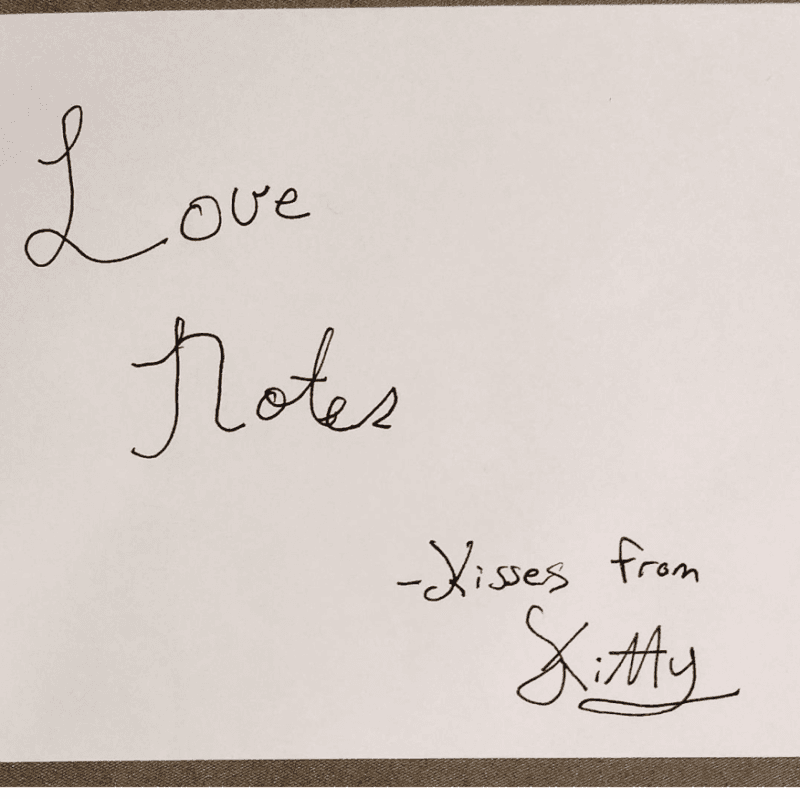 Love
Notes
-Kisses from
Kitty